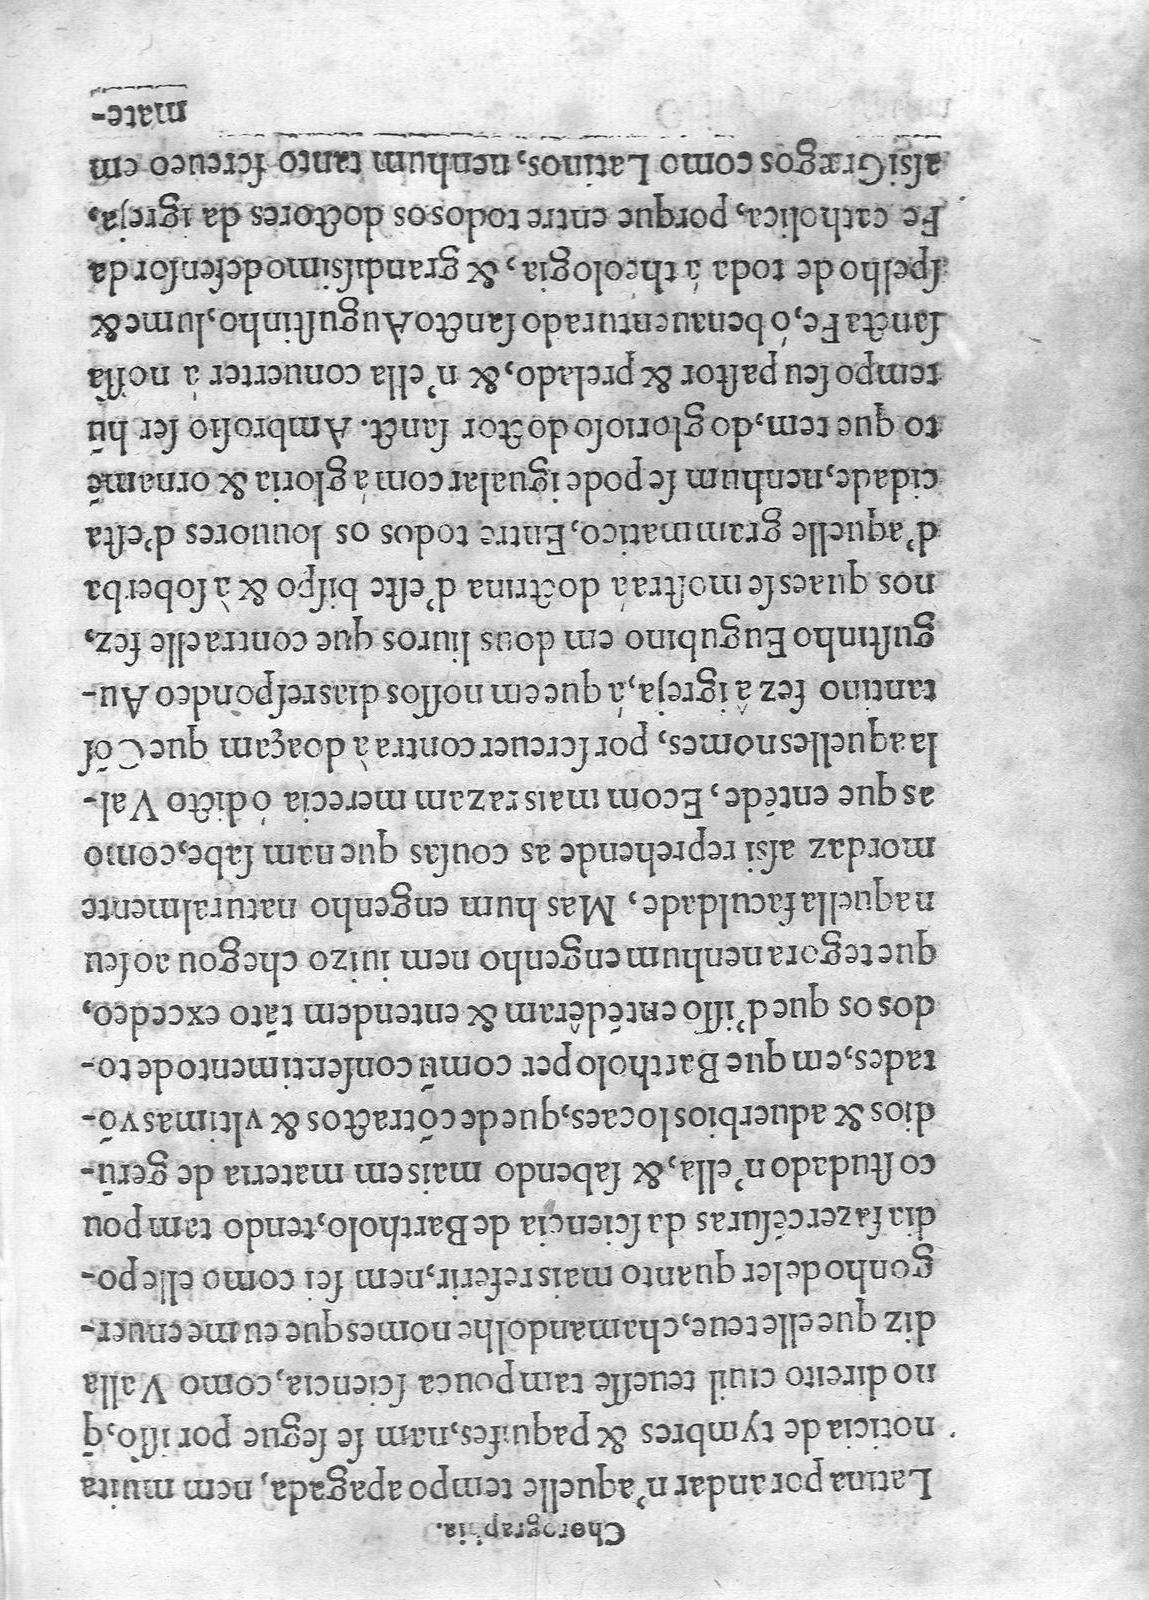 Chorographia.
Latina por andar n'aquelle tempo apagada, nem muita
noticia de tymbres & paquifes, nam ſe ſegue por iſſo, q̃
no direito ciuil teueſſe tam pouca ſciencia, como Valla
diz que elle teue, chamandolhe nomes que eu me enuer-
gonho de ler quanto mais referir, nem ſei como elle po-
dia fazer cẽſuras da ſciencia de Bartholo, tendo tam pou
co ſtudado n'ella, & ſabendo mais em materia de gerũ-
dios & aduerbios locaes, que de cõtractos & vltimas võ-
tades, em que Bartholo per comũ conſentimento de to-
dos os que d'iſſo entẽdêram & entendem tãto excedeo,
que tegora nenhum engenho nem iuizo chegou ao ſeu
naquella faculdade, Mas hum engenho naturalmente
mordaz aſsi reprehende as couſas que nam ſabe, como
as que entẽde, E com mais razam merecia ó dicto Val-
la aquelles nomes, por ſcreuer contra à doaçam que Cõſ
tantino fez â igreja, á que em noſſos dias reſpondeo Au-
guſtinho Eugubino em dous liuros que contra elle fez,
nos quaes ſe moſtra á doctrina d'eſte biſpo & à ſoberba
d'aquelle grammatico, Entre todos os louuores d'eſta
cidade, nenhum ſe pode igualar com á gloria & ornamẽ
to que tem, do glorioſo doctor ſanct. Ambroſio ſer hũ
tempo ſeu paſtor & prelado, & n'ella conuerter á noſſa
ſancta Fe, ó benauenturado ſancto Auguſtinho, lume &
ſpelho de toda á theologia, & grandiſsimo defenſor da
Fe catholica, porque entre todos os doctores da igreja,
aſsi Grægos como Latinos, nenhum tanto ſcreueo em
mate-